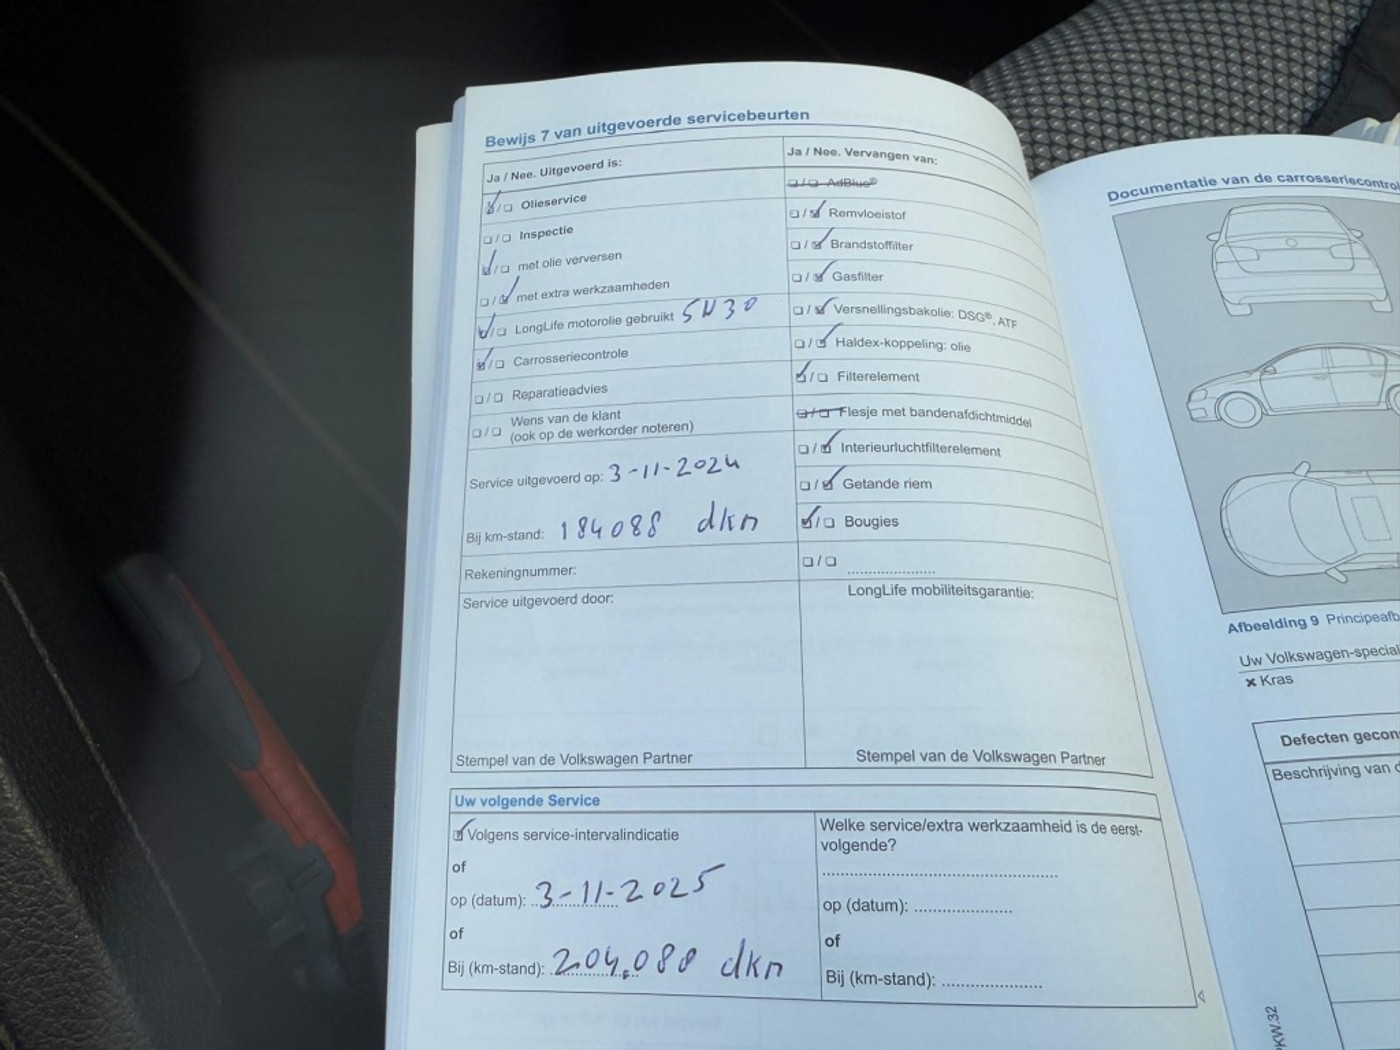 Bewijs 7 van uitgevoerde servicebeurten
Ja / Nee. Uitgevoerd is:
☑/☐ Olieservice
☐/☐ Inspectie
☑/☐ met olie verversen
☐/☑ met extra werkzaamheden
☑/☐ LongLife motorolie gebruikt 5W30
☑/☐ Carrosseriecontrole
☐/☐ Reparatieadvies
☐/☐ Wens van de klant
(ook op de werkorder noteren)
Service uitgevoerd op: 3-11-2024
Bij km-stand: 184088 dkn
Rekeningnummer:
Service uitgevoerd door:
Stempel van de Volkswagen Partner
Ja / Nee. Vervangen van:
☐/☐ AdBlue®
☐/☑ Remvloeistof
☐/☑ Brandstoffilter
☐/☑ Gasfilter
☐/☑ Versnellingsbakolie: DSG®, ATF
☐/☑ Haldex-koppeling: olie
☑/☐ Filterelement
☐/☐ Flesje met bandenafdichtmiddel
☐/☑ Interieurluchtfilterelement
☐/☑ Getande riem
☑/☐ Bougies
☐/☐ ....................
LongLife mobiliteitsgarantie:
Stempel van de Volkswagen Partner
Uw volgende Service
☑ Volgens service-intervalindicatie
of
op (datum): 3-11-2025
of
Bij (km-stand): 204.088 dkn
Welke service/extra werkzaamheid is de eerst-
volgende?
....................
op (datum): ....................
of
Bij (km-stand): ....................
Documentatie van de carrosseriecontrol
Afbeelding 9 Principeafb
Uw Volkswagen-special
✖ Kras
Defecten gecon
Beschrijving van d
PKW.32